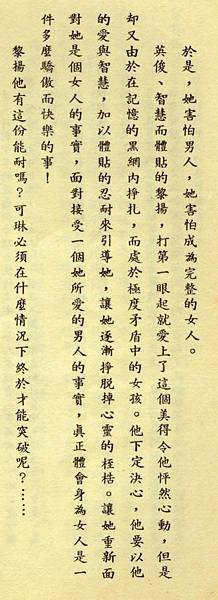 於是，她害怕男人，她害怕成為完整的女人。
英俊、智慧而體貼的黎揚，打第一眼起就愛上了這個美得令他怦然心動，但是
却又由於在記憶的黑網內掙扎，而處於極度矛盾中的女孩。他下定決心，他要以他
的愛與智慧，加以體貼的忍耐來引導她，讓她逐漸掙脫掉心靈的桎梏。讓她重新面
對她是個女人的事實，面對接受一個她所愛的男人的事實，真正體會身為女人是一
件多麼驕傲而快樂的事！
黎揚他有這份能耐嗎？可琳必須在什麼情況下終於才能突破呢？……